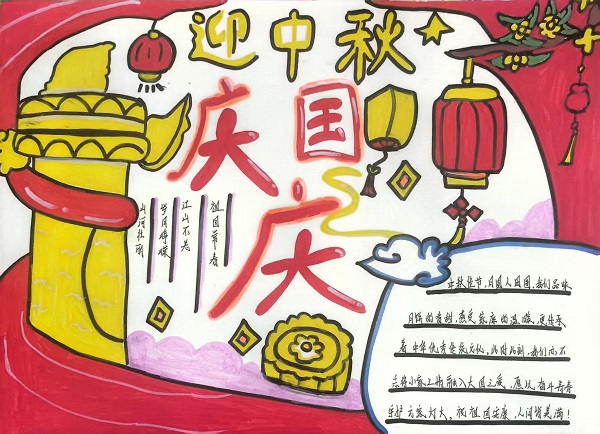 迎中秋
庆国庆
祖国常春
江山不老
岁月峥嵘
山河壮丽
中秋佳节,月圆人团圆,我们品味
月饼的香甜,感受家庭的温暖,更传承
着中华优秀传统文化。此时此刻,我们亦不
忘将小家之情融入大国之爱,愿以奋斗青春
守护万家灯火,祝祖国安康,人间皆美满!